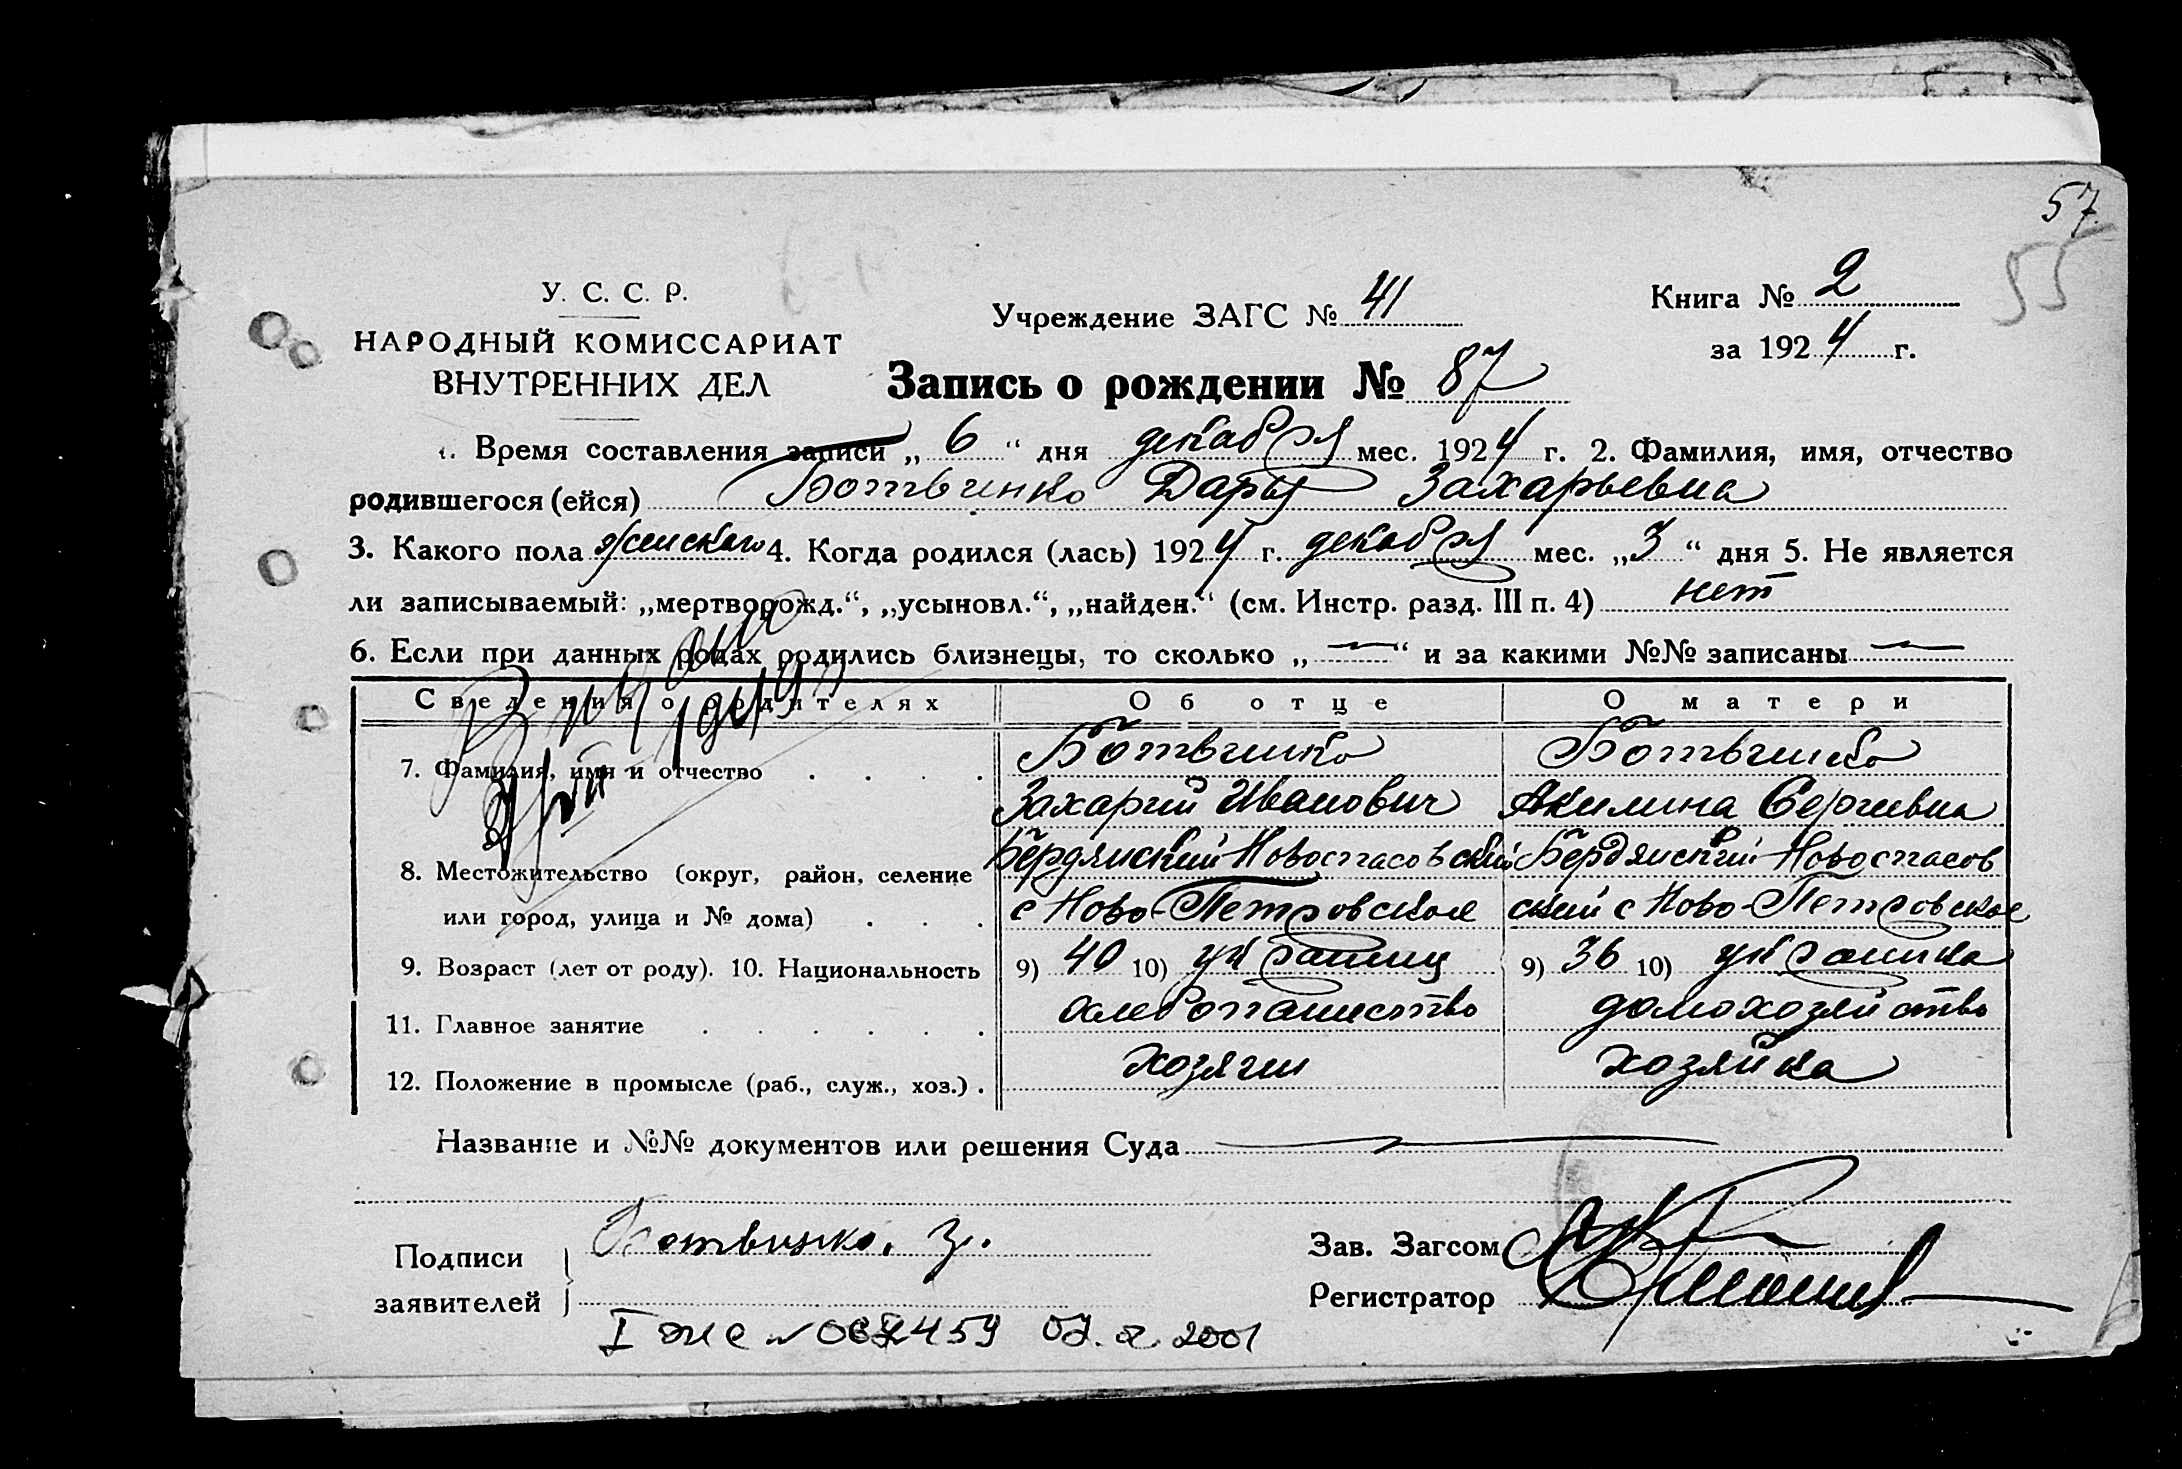 57
55
У. С. С. Р.
НАРОДНЫЙ КОМИССАРИАТ
ВНУТРЕННИХ ДЕЛ
Учреждение ЗАГС № 41
Книга № 2
за 1924 г.
Запись о рождении № 87
1. Время составления записи „6“ дня декабря мес. 1924 г. 2. Фамилия, имя, отчество
родившегося (ейся) Ботвинко Дарья Захарьевна
3. Какого пола женского 4. Когда родился (лась) 1924 г. декабря мес. „3“ дня 5. Не является
ли записываемый: „мертворожд.“, „усыновл.“, „найден.“ (см. Инстр. разд. III п. 4) нет
6. Если при данных родах родились близнецы, то сколько „—“ и за какими №№ записаны —
Сведения о родителях Об отце О матери
7. Фамилия, имя и отчество . . . . Ботвинко Ботвинко
Захарий Иванович Акилина Сергиевна
8. Местожительство (округ, район, селение Бердянский Новоспасовский Бердянский Новоспасов
или город, улица и № дома) . . . с Ново-Петровское ский с Ново-Петровское
9. Возраст (лет от роду). 10. Национальность 9) 40 10) украинец 9) 36 10) украинка
11. Главное занятие . . . . . . хлебопашество домохозяйство
12. Положение в промысле (раб., служ., хоз.) . хозяин хозяйка
Название и №№ документов или решения Суда —
Подписи заявителей Ботвинко. З.
Зав. Загсом
Регистратор